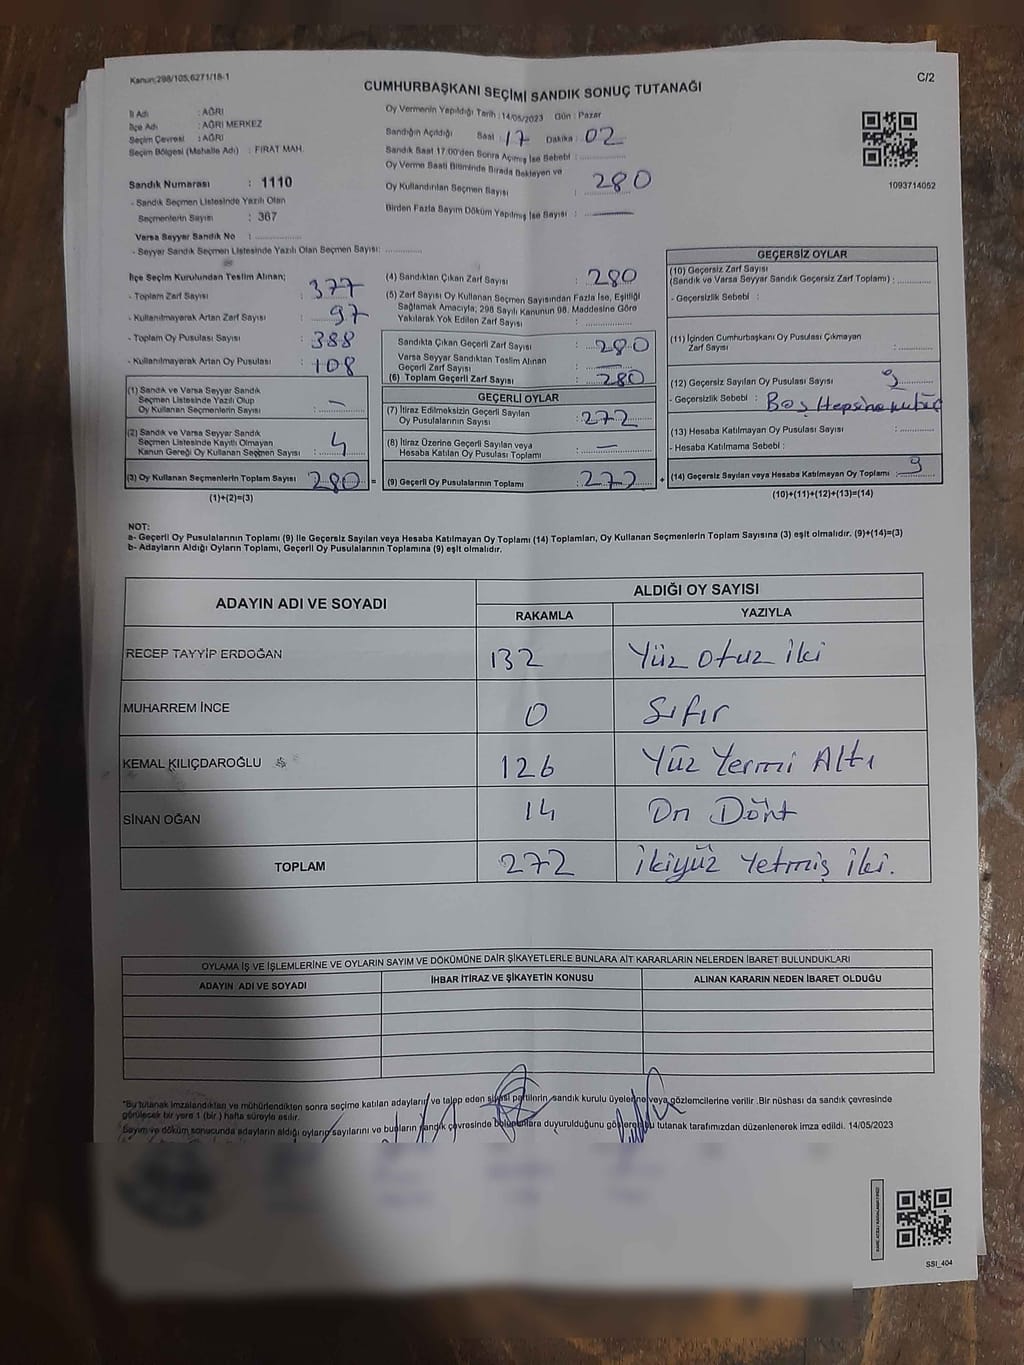 Kanun;298/105,6271/18-1
C/2
CUMHURBAŞKANI SEÇİMİ SANDIK SONUÇ TUTANAĞI
İl Adı : AĞRI
İlçe Adı : AĞRI MERKEZ
Seçim Çevresi : AĞRI
Seçim Bölgesi (Mahalle Adı) : FIRAT MAH.
Sandık Numarası : 1110
- Sandık Seçmen Listesinde Yazılı Olan
Seçmenlerin Sayısı : 367
Varsa Seyyar Sandık No :
- Seyyar Sandık Seçmen Listesinde Yazılı Olan Seçmen Sayısı:
Oy Vermenin Yapıldığı Tarih : 14/05/2023 Gün : Pazar
Sandığın Açıldığı Saat : 17 Dakika : 02
Sandık Saat 17:00'den Sonra Açılmış İse Sebebi :
Oy Verme Saati Bitiminde Sırada Bekleyen ve
Oy Kullandırılan Seçmen Sayısı : 280
Birden Fazla Sayım Döküm Yapılmış İse Sayısı : —
1093714052
İlçe Seçim Kurulundan Teslim Alınan;
- Toplam Zarf Sayısı : 377
- Kullanılmayarak Artan Zarf Sayısı : 97
- Toplam Oy Pusulası Sayısı : 388
- Kullanılmayarak Artan Oy Pusulası : 108
(1) Sandık ve Varsa Seyyar Sandık
Seçmen Listesinde Yazılı Olup
Oy Kullanan Seçmenlerin Sayısı : —
(2) Sandık ve Varsa Seyyar Sandık
Seçmen Listesinde Kayıtlı Olmayan
Kanun Gereği Oy Kullanan Seçmen Sayısı : 4
(3) Oy Kullanan Seçmenlerin Toplam Sayısı 280 =
(1)+(2)=(3)
(4) Sandıktan Çıkan Zarf Sayısı : 280
(5) Zarf Sayısı Oy Kullanan Seçmen Sayısından Fazla İse, Eşitliği
Sağlamak Amacıyla; 298 Sayılı Kanunun 98. Maddesine Göre
Yakılarak Yok Edilen Zarf Sayısı :
Sandıkta Çıkan Geçerli Zarf Sayısı : 280
Varsa Seyyar Sandıktan Teslim Alınan
Geçerli Zarf Sayısı : —
(6) Toplam Geçerli Zarf Sayısı : 280
GEÇERLİ OYLAR
(7) İtiraz Edilmeksizin Geçerli Sayılan
Oy Pusulalarının Sayısı : 272
(8) İtiraz Üzerine Geçerli Sayılan veya
Hesaba Katılan Oy Pusulası Toplamı : —
(9) Geçerli Oy Pusulalarının Toplamı : 272 +
GEÇERSİZ OYLAR
(10) Geçersiz Zarf Sayısı
(Sandık ve Varsa Seyyar Sandık Geçersiz Zarf Toplamı) :
- Geçersizlik Sebebi :
(11) İçinden Cumhurbaşkanı Oy Pusulası Çıkmayan
Zarf Sayısı :
(12) Geçersiz Sayılan Oy Pusulası Sayısı : 9
- Geçersizlik Sebebi : Boş Hepsine
(13) Hesaba Katılmayan Oy Pusulası Sayısı :
- Hesaba Katılmama Sebebi :
(14) Geçersiz Sayılan veya Hesaba Katılmayan Oy Toplamı : 9
(10)+(11)+(12)+(13)=(14)
NOT:
a- Geçerli Oy Pusulalarının Toplamı (9) ile Geçersiz Sayılan veya Hesaba Katılmayan Oy Toplamı (14) Toplamları, Oy Kullanan Seçmenlerin Toplam Sayısına (3) eşit olmalıdır. (9)+(14)=(3)
b- Adayların Aldığı Oyların Toplamı, Geçerli Oy Pusulalarının Toplamına (9) eşit olmalıdır.
ADAYIN ADI VE SOYADI
ALDIĞI OY SAYISI
RAKAMLA YAZIYLA
RECEP TAYYİP ERDOĞAN 132 Yüz otuz iki
MUHARREM İNCE 0 Sıfır
KEMAL KILIÇDAROĞLU 126 Yüz Yermi Altı
SİNAN OĞAN 14 On Dört
TOPLAM 272 İkiyüz Yetmiş iki.
OYLAMA İŞ VE İŞLEMLERİNE VE OYLARIN SAYIM VE DÖKÜMÜNE DAİR ŞİKAYETLERLE BUNLARA AİT KARARLARIN NELERDEN İBARET BULUNDUKLARI
ADAYIN ADI VE SOYADI İHBAR İTİRAZ VE ŞİKAYETİN KONUSU ALINAN KARARIN NEDEN İBARET OLDUĞU
"Bu tutanak imzalandıktan ve mühürlendikten sonra seçime katılan adayların ve talep eden siyasi partilerin, sandık kurulu üyelerine veya gözlemcilerine verilir .Bir nüshası da sandık çevresinde
görülecek bir yere 1 (bir ) hafta süreyle asılır.
Sayım ve döküm sonucunda adayların aldığı oyların sayılarını ve bunların sandık çevresinde bulunanlara duyurulduğunu gösteren bu tutanak tarafımızdan düzenlenerek imza edildi. 14/05/2023
SSI_404